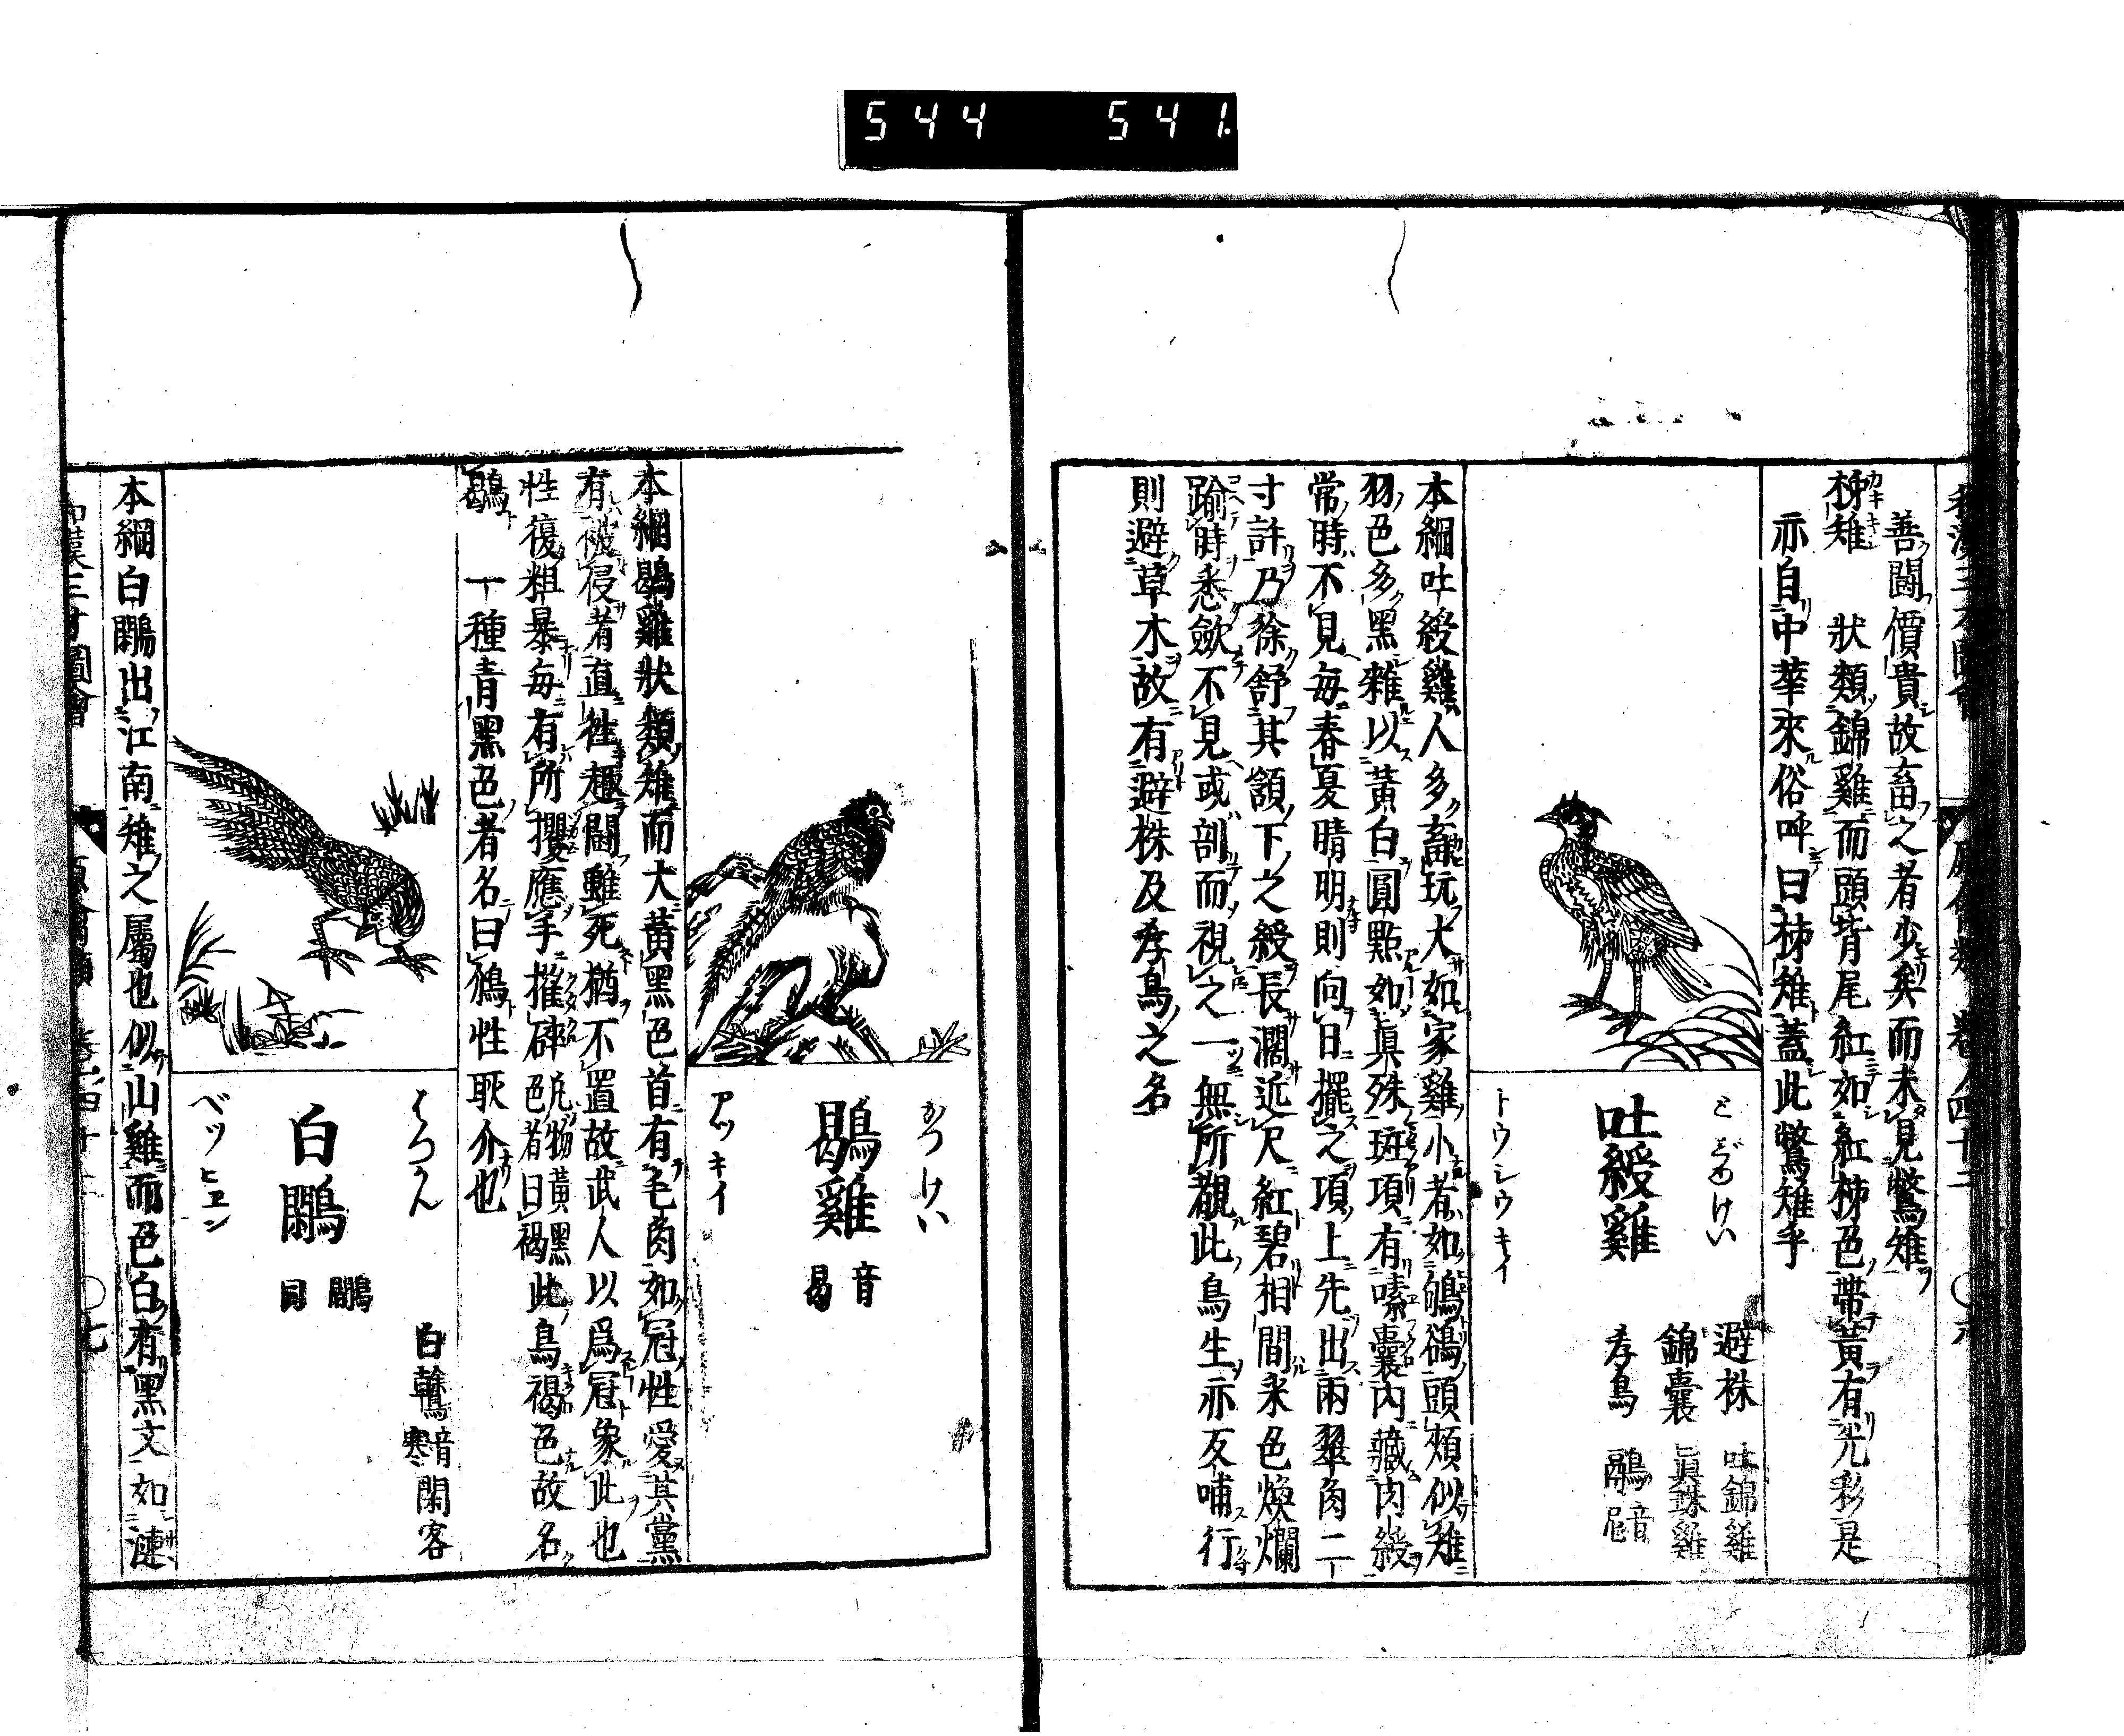 544 541.
善鬪價貴故畜之者少矣而未見鷩雉
柹雉 狀類錦雞而頭背尾紅如紅柹色帶黃有光彩是
亦自中華來俗呼曰柹雉蓋此鷩雉乎
とじゆけい
吐綬雞
トウシウキイ
避株 吐錦雞
錦囊 眞珠雞
孝鳥 鷊音
本綱吐綬雞人多畜玩大如家雞小者如鴝鵒頭頰似雉
羽色多黑雜以黃白圓點如眞珠斑項有嗉囊内藏肉綬
常時不見每春夏晴明則向日擺之項上先出兩翠角二
寸許乃徐舒其頷下之綬長濶近尺紅碧相間采色煥爛
踰時悉歛不見或剖而視之一無所覩此鳥生亦反哺行
則避草木故有避株及孝鳥之名
かつけい
鶡雞
音曷
アッキイ
本綱鶡雞狀類雉而大黃黑色首有毛角如冠性愛其黨
有被侵者直往趣鬪雖死猶不置故武人以爲冠象此也
性復粗暴每有所攫應手摧碎凡物黃黑色者曰褐此鳥褐色故名
鶡 一種青黑色者名曰鳻性耿介也
はつかん
白鷳
鷴同
白鶾音寒 閑客
ベッヒヱン
本綱白鷳出江南雉之屬也似山雞而色白有黑文如漣
和漢三才圖會 原禽類 卷之四十二 〇七